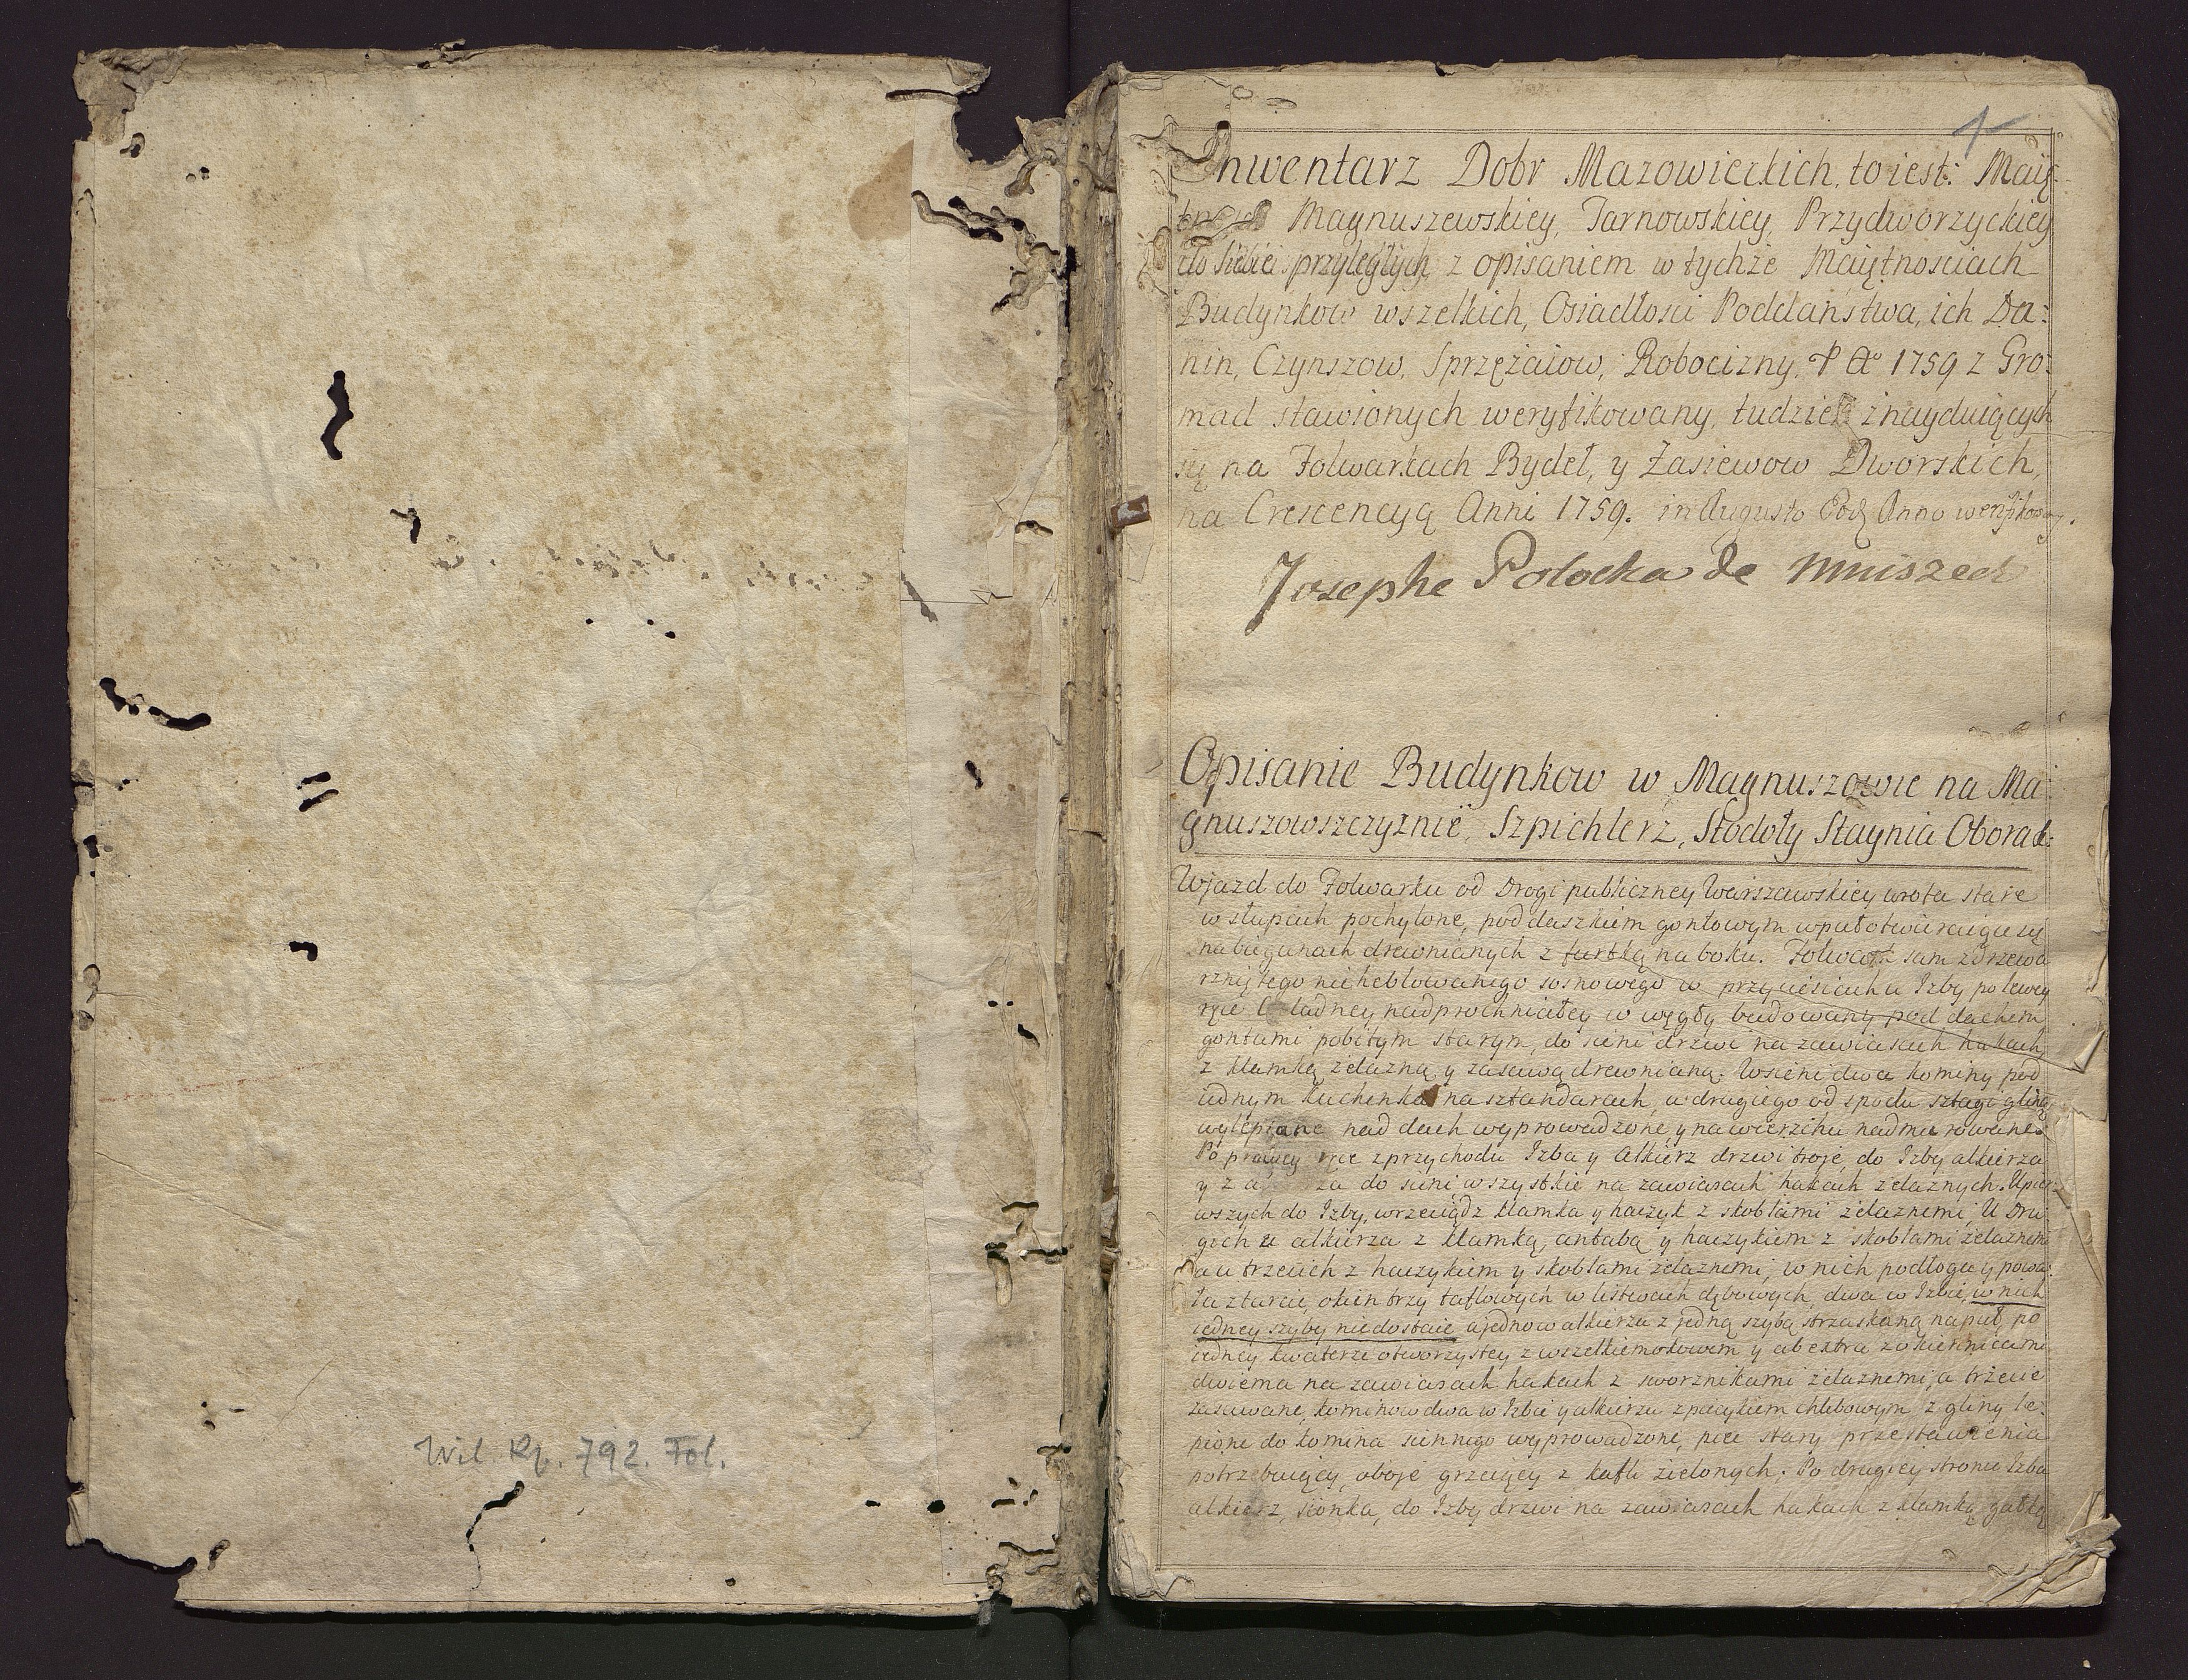 Wil. Rf. 792. Fol.
1
Inwentarz Dobr Mazowieckich, to iest: Maię-
Magnuszewskiey, Tarnowskiey, Przydworzyckiey
do Siebie przyległych z opisaniem w tychże Maiętnosciach
Budynkow wszelkich, Osiadłosci Poddaństwa, ich Da:
nin, Czynszow, Sprzężaiow, Robocizny, P Ao 1759 z Gro:
mad stawionych weryfikowany, tudziesz znayduiących
się na Folwarkach Bydeł, y Zasiewow Dworskich,
na Crescencyą Anni 1759. in Augusto Anno weryfikowany.
Josephe Potocka de Mniszech
Opisanie Budynkow w Magnuszowie na Ma:
gnuszowszczyznie, Szpichlerz, Stodoły Staynia Obora &:
Wjazd do Folwarku od Drogi publiczney Warszawskiey wrota stare
w słupach pochylone, pod daszkiem gontowym wpuł otwieraiące się
na biegunach drewnianych z furtką na boku. Folwark sam z drzewa
rzniętego nieheblowanego sosnowego w przyciesiach u Izby po lewey
ręce ladney nadprochniałey w węgły budowany pod dachem
gontami pobitym starym, do sieni drzwi na zawiasach hakach
z klamką żelazną y zasuwą drewnianą. W sieni dwa kominy pod
iednym kuchenka na sztandarach, a drugiego od spodu sztagi gliną
wylepiane nad dach wyprowadzone, y na wierzchu nadmurowane.
Po prawey ręce z przychodu Izba y Alkierz drzwi troje, do Izby alkierza
y z a za do sieni wszystkie na zawiasach hakach żelaznych. U pier-
wszych do Izby, wrzeciądz klamka y haczyk z skoblami żelaznemi, U Dru
gich u alkierza z klamką, antabą y haczykiem z skoblami żelaznemi
a u trzecich z haczykiem y skoblami żelaznemi, w nich podłoga y powa:
ła z tarcic, okien trzy taflowych w listwach dębowych, dwa w Izbie, w nich
iedney szyby niedostaie, a jedno w alkierzu z jedną szybą strzaskaną na puł, po
iedney kwaterze otworzystey z wszelkiem okowem y ab extra z okiennicami
dwiema na zawiasach hakach z sworznikami żelaznemi, a trzecie
zasuwane, kominow dwa w Izbie y alkierzu z piecykiem chlebowym z gliny le-
pione do komina siennego wyprowadzone, piec stary przestawienia
potrzebuiący, oboje grzeiący z kafli zielonych. Po drugiey stronie Izba
alkierz, sionka, do Izby drzwi na zawiasach hakach z klamką gałką